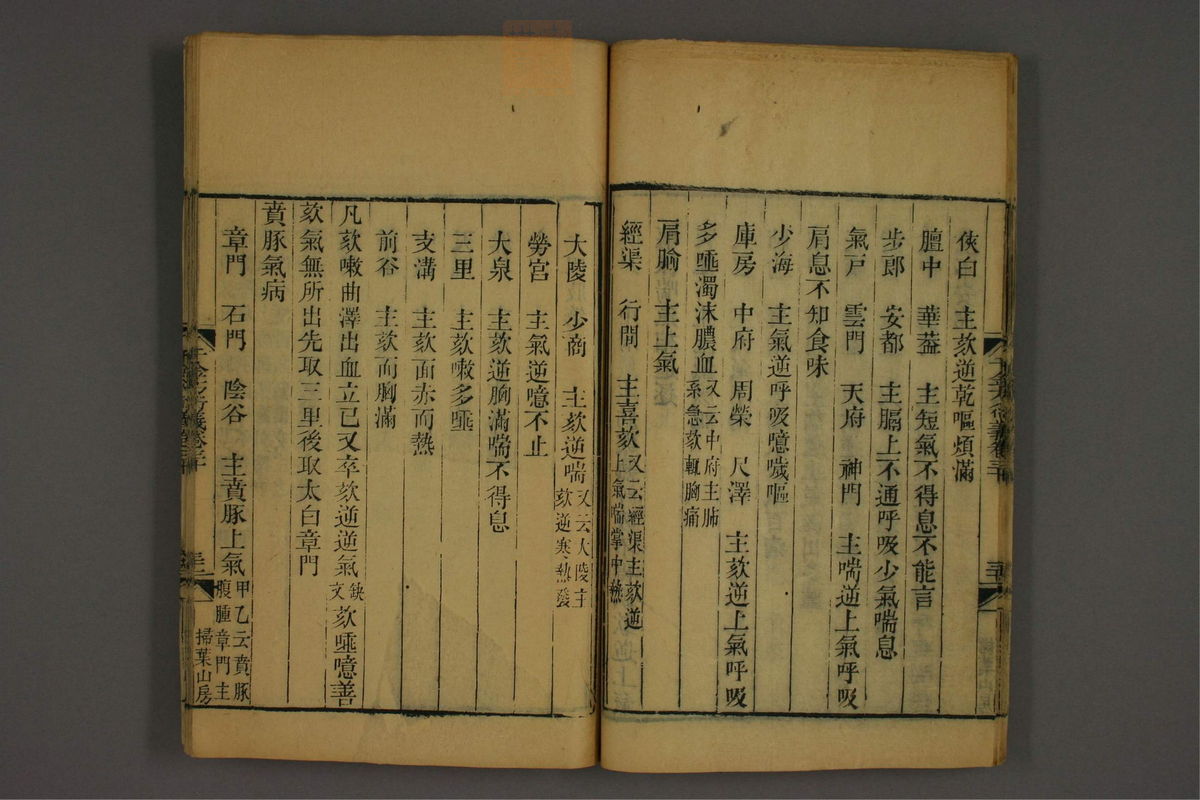 俠白　主欬逆乾嘔煩滿
膻中　華葢　主短氣不得息不能言
步郎　安都　主膈上不通呼吸少氣喘息
氣戸　雲門　天府　神門　主喘逆上氣呼吸
肩息不知食味
少海　主氣逆呼吸噫噦嘔
庫房　中府　周榮　尺澤　主欬逆上氣呼吸
多唾濁沫膿血又云中府主肺系急欬輒胸痛
肩腧　主上氣
經渠　行間　主喜欬又云經渠主欬逆上氣喘掌中熱
大陵　少商　主欬逆喘又云大陵主欬逆寒熱發
勞宮　主氣逆噫不止
大泉　主欬逆胸滿喘不得息
三里　主欬嗽多唾
支溝　主欬面赤而熱
前谷　主欬而胸滿
凡欬嗽曲澤出血立已又卒欬逆逆氣缺文欬唾噫善
欬氣無所出先取三里後取太白章門
賁豚氣病
章門　石門　陰谷　主賁豚上氣甲乙云賁豚腹腫章門主
掃葉山房